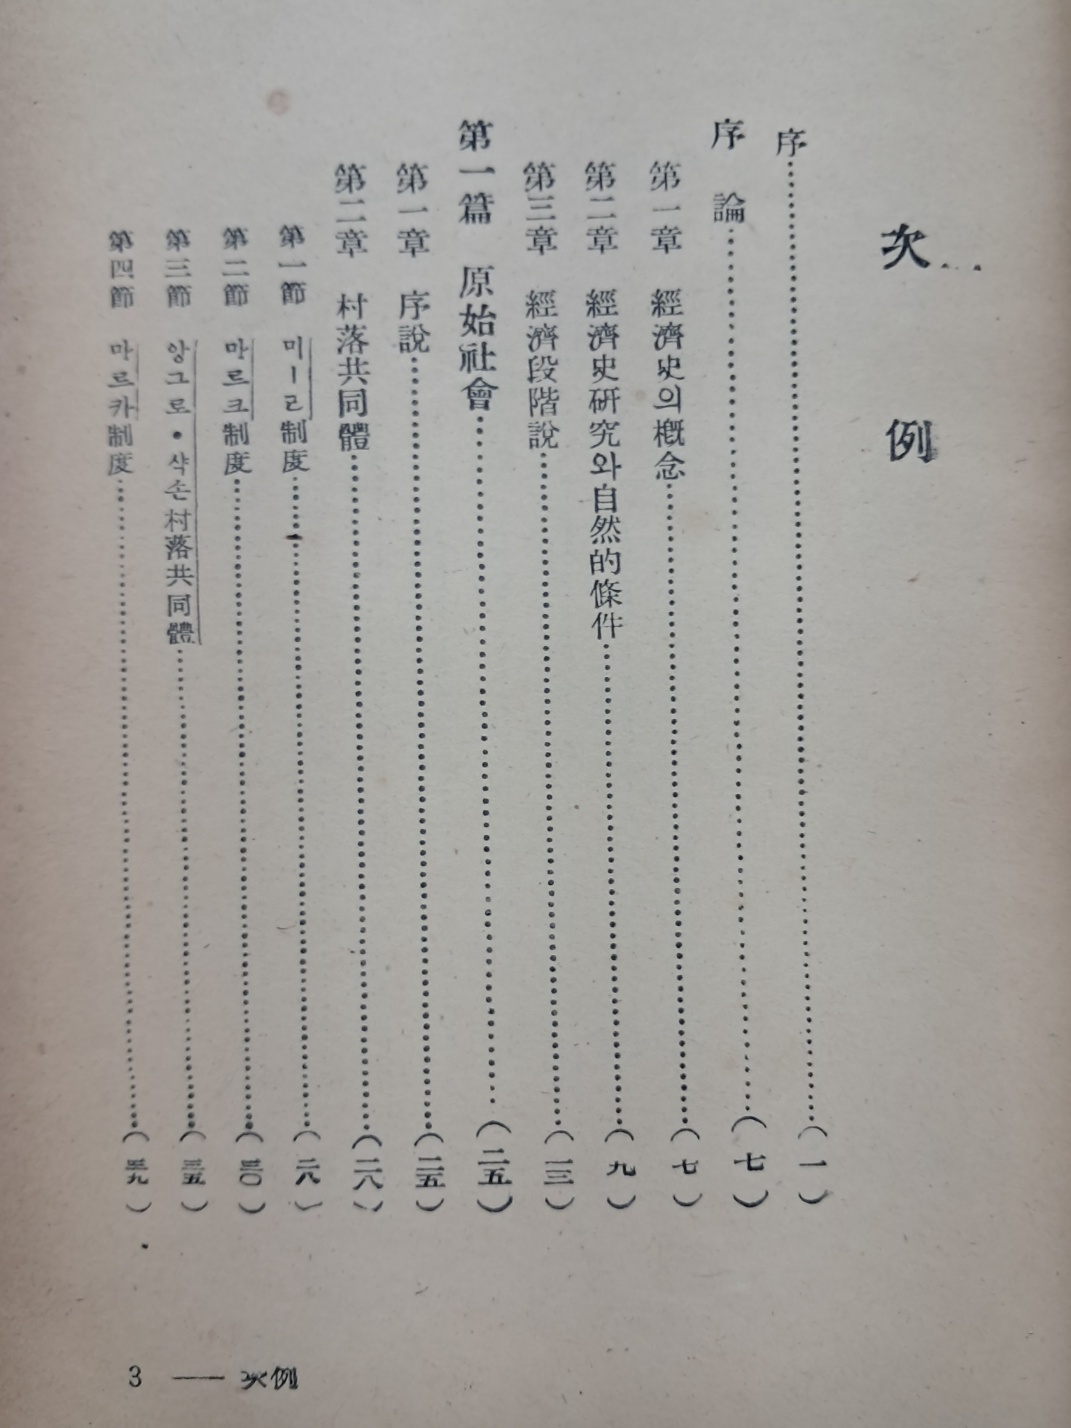 次例
序……(一)
序論……(七)
第一章 經濟史의槪念……(七)
第二章 經濟史硏究와自然的條件……(九)
第三章 經濟段階說……(一三)
第一篇 原始社會……(二五)
第一章 序說……(二五)
第二章 村落共同體……(二八)
第一節 미ー르制度……(二八)
第二節 마르크制度……(三〇)
第三節 앙그로・삭손村落共同體……(三五)
第四節 마르카制度……(三九)
3 —— 次例